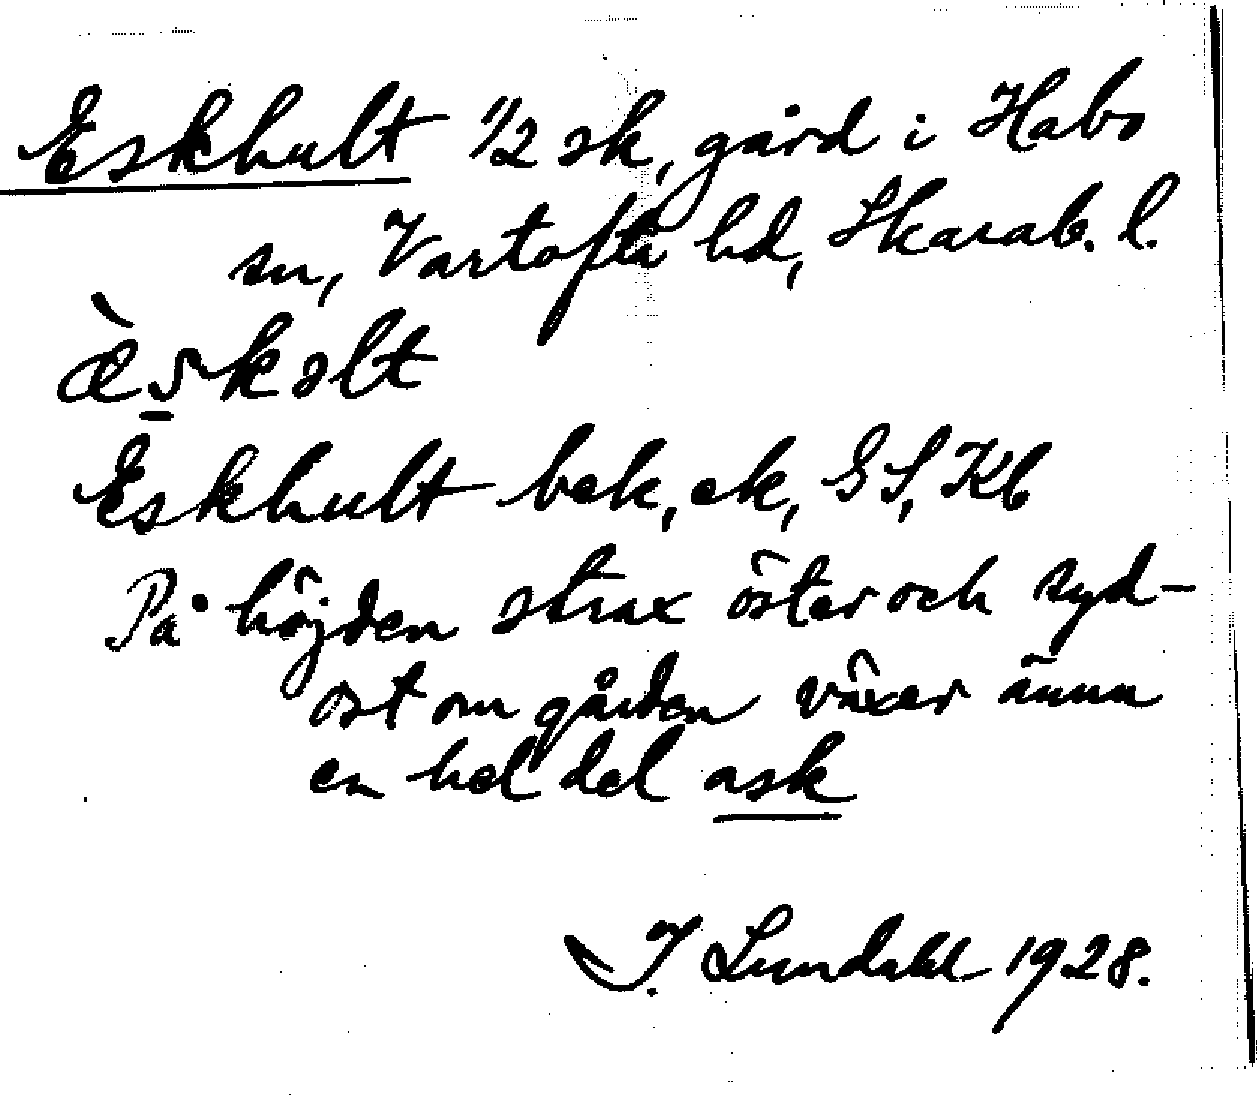 Eskhult 1/2 sk, gård i Habo
sn, Vartofta hd, Skarab. l.
æ̀s̱kolt
Eskhult bek, ek, GS, Kb
På höjden strax öster och syd-
ost om gården växer ännu
en hel del ask
I. Lundahl 1928.